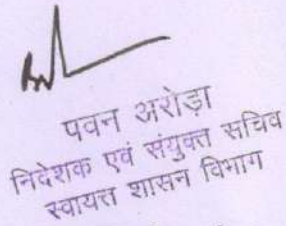 पवन अरोड़ा
निदेशक एवं संयुक्त सचिव
स्वायत्त शासन विभाग